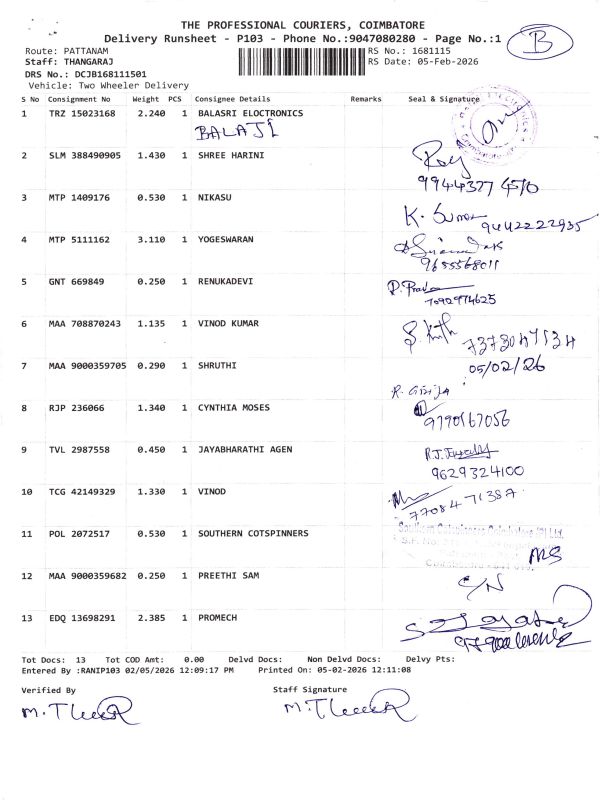 THE PROFESSIONAL COURIERS, COIMBATORE
Delivery Runsheet - P103 - Phone No.:9047080280 - Page No.:1
B
Route: PATTANAM RS No.: 1681115
Staff: THANGARAJ RS Date: 05-Feb-2026
DRS No.: DCJB168111501
Vehicle: Two Wheeler Delivery
S No Consignment No Weight PCS Consignee Details Remarks Seal & Signature
1 TRZ 15023168 2.240 1 BALASRI ELOCTRONICS
BALAJI
2 SLM 388490905 1.430 1 SHREE HARINI
3 MTP 1409176 0.530 1 NIKASU
K. Sumar 9442222935
4 MTP 5111162 3.110 1 YOGESWARAN
9655568011
5 GNT 669849 0.250 1 RENUKADEVI
7092974625
6 MAA 708870243 1.135 1 VINOD KUMAR
7373047134
7 MAA 9000359705 0.290 1 SHRUTHI
05/02/26
R. Girija
8 RJP 236066 1.340 1 CYNTHIA MOSES
9790167056
9 TVL 2987558 0.450 1 JAYABHARATHI AGEN
9629324100
10 TCG 42149329 1.330 1 VINOD
11 POL 2072517 0.530 1 SOUTHERN COTSPINNERS
Southern Cotspinners Coimbatore (P) Ltd.
12 MAA 9000359682 0.250 1 PREETHI SAM
C/N
13 EDQ 13698291 2.385 1 PROMECH
Tot Docs: 13 Tot COD Amt: 0.00 Delvd Docs: Non Delvd Docs: Delvy Pts:
Entered By :RANIP103 02/05/2026 12:09:17 PM Printed On: 05-02-2026 12:11:08
Verified By Staff Signature